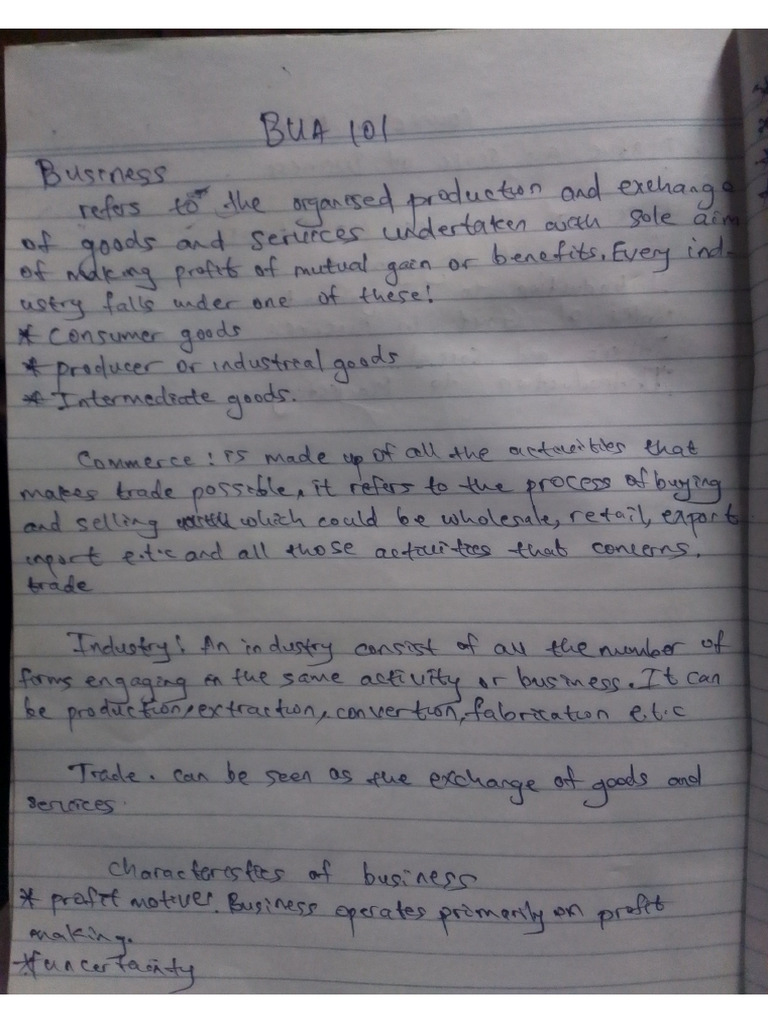 BUA 101
Business
refers to the organised production and exchange
of goods and services undertaken with sole aim
of making profit of mutual gain or benefits. Every ind-
ustry falls under one of these!
* Consumer goods
* producer or industrial goods
* Intermediate goods.
Commerce: is made up of all the activities that
makes trade possible, it refers to the process of buying
and selling which could be wholesale, retail, export
import e.t.c and all those activities that concerns.
trade
Industry: An industry consist of all the number of
forms engaging in the same activity or business. It can
be production, extraction, convertion, fabrication e.t.c
Trade. can be seen as the exchange of goods and
services.
Characteristics of business
* profit motive. Business operates primarily on profit
making.
* uncertainty